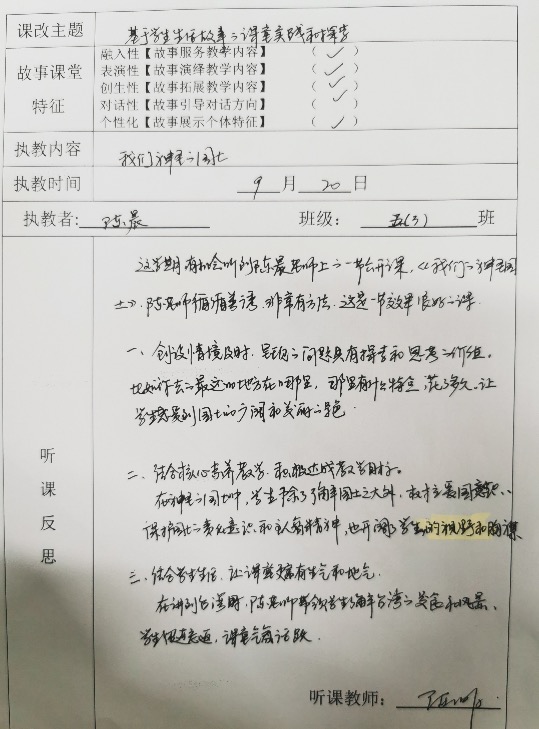 课改主题 基于学生生活故事之课堂实践和探索
故事课堂特征
融入性【故事服务教学内容】 （ ✓ ）
表演性【故事演绎教学内容】 （ ✓ ）
创生性【故事拓展教学内容】 （ ✓ ）
对话性【故事引导对话方向】 （ ）
个性化【故事展示个体特征】 （ ✓ ）
执教内容 我们神圣之国土
执教时间 9 月 20 日
执教者：陈晨 班级：五(3) 班
听课反思
这学期有机会听到陈晨老师上之一节公开课，《我们之神圣国
土》，陈老师循循善诱，非常有方法，这是一节效果很好之课。
一、创设情境及时，呈现之问题具有探索和思考之价值。
比如你去之最远的地方在哪里，那里有什么特点，花了多久，让
学生感受到国土的广阔和美丽之景色。
二、结合核心素养教学，积极达成教学目标。
在神圣之国土中，学生除了了解国土之大外，故才爱国意识、
保护国土之责任意识和主人翁精神，也开阔了学生的视野和胸襟
三、结合学生生活，让课堂富有生气和地气。
在讲到台湾时，陈老师带领学生了解台湾之美食和风景，
学生，课堂气氛活跃。
听课教师：